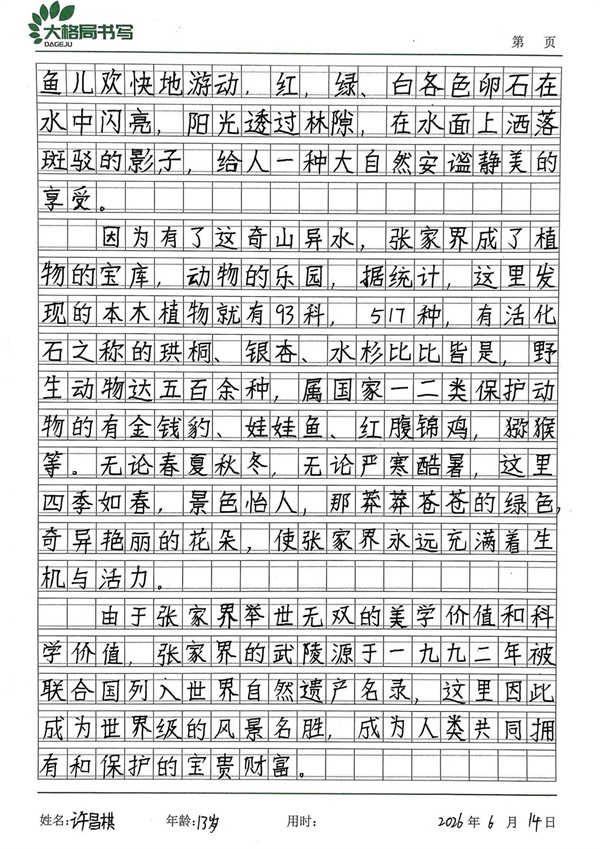 大格局书写
DAGEJU
第 页
鱼儿欢快地游动,红,绿、白各色卵石在
水中闪亮,阳光透过林隙,在水面上洒落
斑驳的影子,给人一种大自然安谧静美的
享受。
因为有了这奇山异水,张家界成了植
物的宝库,动物的乐园,据统计,这里发
现的本木植物就有93科,517种,有活化
石之称的珙桐、银杏、水杉比比皆是,野
生动物达五百余种,属国家一二类保护动
物的有金钱豹、娃娃鱼、红腹锦鸡,猕猴
等。无论春夏秋冬,无论严寒酷暑,这里
四季如春,景色怡人,那莽莽苍苍的绿色,
奇异艳丽的花朵,使张家界永远充满着生
机与活力。
由于张家界举世无双的美学价值和科
学价值,张家界的武陵源于一九九二年被
联合国列入世界自然遗产名录,这里因此
成为世界级的风景名胜,成为人类共同拥
有和保护的宝贵财富。
姓名:许昌棋 年龄:13岁 用时: 2026年6月14日